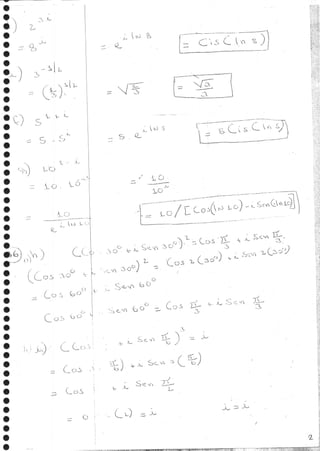 ) 2^3i
= 8^i = e^(i ln 8) = Cis (ln 8)
) 3^(-1/2)
= (1/3)^(1/2) = √(1/3) = √3/3
c) 5^(1+i)
= 5 . 5^i = 5 e^(i ln 5) = 5 Cis (ln 5)
10^(1-i)
= 10 . 10^-i = 10/10^i
= 10/e^(i ln 10) =
30° + i Sen 30°)^2 = Cos π/3 + i Sen π/3
(Cos 30° + i Sen 30°)^2 = Cos 2(30°) + i Sen 2(30°)
= Cos 60° + i Sen 60°
Cos 60° + i Sen 60° = Cos π/3 + i Sen π/3
(Cos + i Sen π/6)^3 = i
= Cos π/6) + i Sen 3(π/6)
= Cos + i Sen π/2
= 0 (1) = i i = i
2